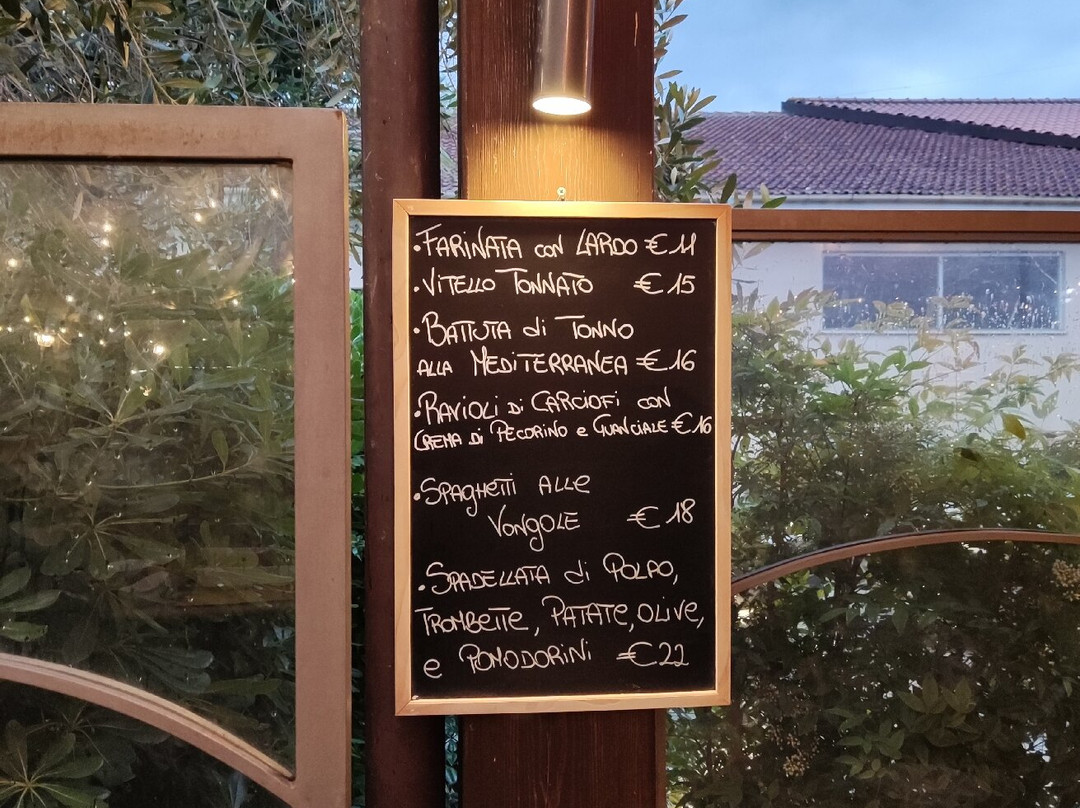 •FARINATA con LARDO €11
•VITELLO TONNATO €15
•BATTUTA di TONNO
ALLA MEDITERRANEA €16
•RAVIOLI Di CARCIOFi CON
CREMA Di PECORINO e GUANCIALE €16
•SPAGHETTI ALLE
VONGOLE €18
•SPADELLATA di POLPO,
TROMBETTE, PATATE, OLIVE,
e POMODORINI €22